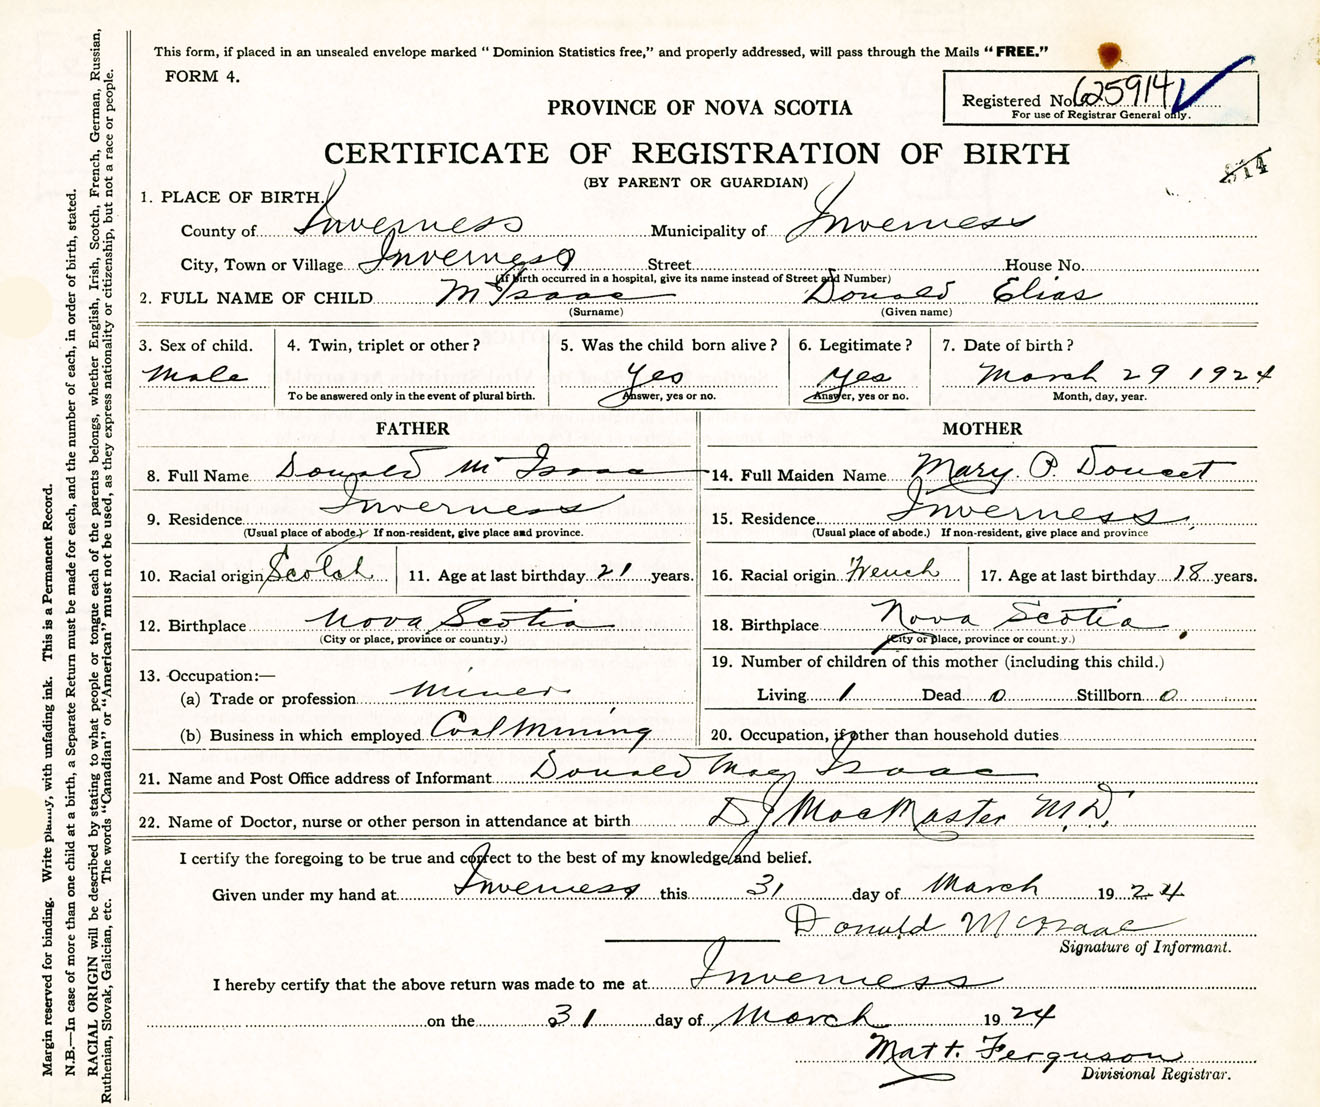 This form, if placed in an unsealed envelope marked "Dominion Statistics free," and properly addressed, will pass through the Mails "FREE."
FORM 4.
Registered No. 625914
For use of Registrar General only.
PROVINCE OF NOVA SCOTIA
CERTIFICATE OF REGISTRATION OF BIRTH
(BY PARENT OR GUARDIAN)
814
1. PLACE OF BIRTH.
County of Inverness Municipality of Inverness
City, Town or Village Inverness Street House No.
(If birth occurred in a hospital, give its name instead of Street and Number)
2. FULL NAME OF CHILD McIsaac Donald Elias
(Surname) (Given name)
3. Sex of child. 4. Twin, triplet or other? 5. Was the child born alive? 6. Legitimate? 7. Date of birth?
Male Yes Yes March 29 1924
To be answered only in the event of plural birth. Answer, yes or no. Answer, yes or no. Month, day, year.
FATHER MOTHER
8. Full Name Donald McIsaac 14. Full Maiden Name Mary P. Doucet
9. Residence Inverness 15. Residence Inverness
(Usual place of abode.) If non-resident, give place and province. (Usual place of abode.) If non-resident, give place and province
10. Racial origin Scotch 11. Age at last birthday 21 years. 16. Racial origin French 17. Age at last birthday 18 years.
12. Birthplace Nova Scotia 18. Birthplace Nova Scotia
(City or place, province or country.) (City or place, province or country.)
13. Occupation:— 19. Number of children of this mother (including this child.)
(a) Trade or profession Miner Living 1 Dead 0 Stillborn 0
(b) Business in which employed Coal Mining 20. Occupation, if other than household duties
21. Name and Post Office address of Informant Donald MacIsaac
22. Name of Doctor, nurse or other person in attendance at birth D J MacMaster M.D.
I certify the foregoing to be true and correct to the best of my knowledge and belief.
Given under my hand at Inverness this 31 day of March 1924
Donald McIsaac
Signature of Informant.
I hereby certify that the above return was made to me at Inverness
on the 31 day of March 1924
Matt. Ferguson
Divisional Registrar.
Margin reserved for binding. Write plainly, with unfading ink. This is a Permanent Record.
N.B.—In case of more than one child at a birth, a Separate Return must be made for each, and the number of each, in order of birth, stated.
RACIAL ORIGIN will be described by stating to what people or tongue each of the parents belongs, whether English, Irish, Scotch, French, German, Russian,
Ruthenian, Slovak, Galician, etc. The words "Canadian" or "American" must not be used, as they express nationality or citizenship, but not a race or people.